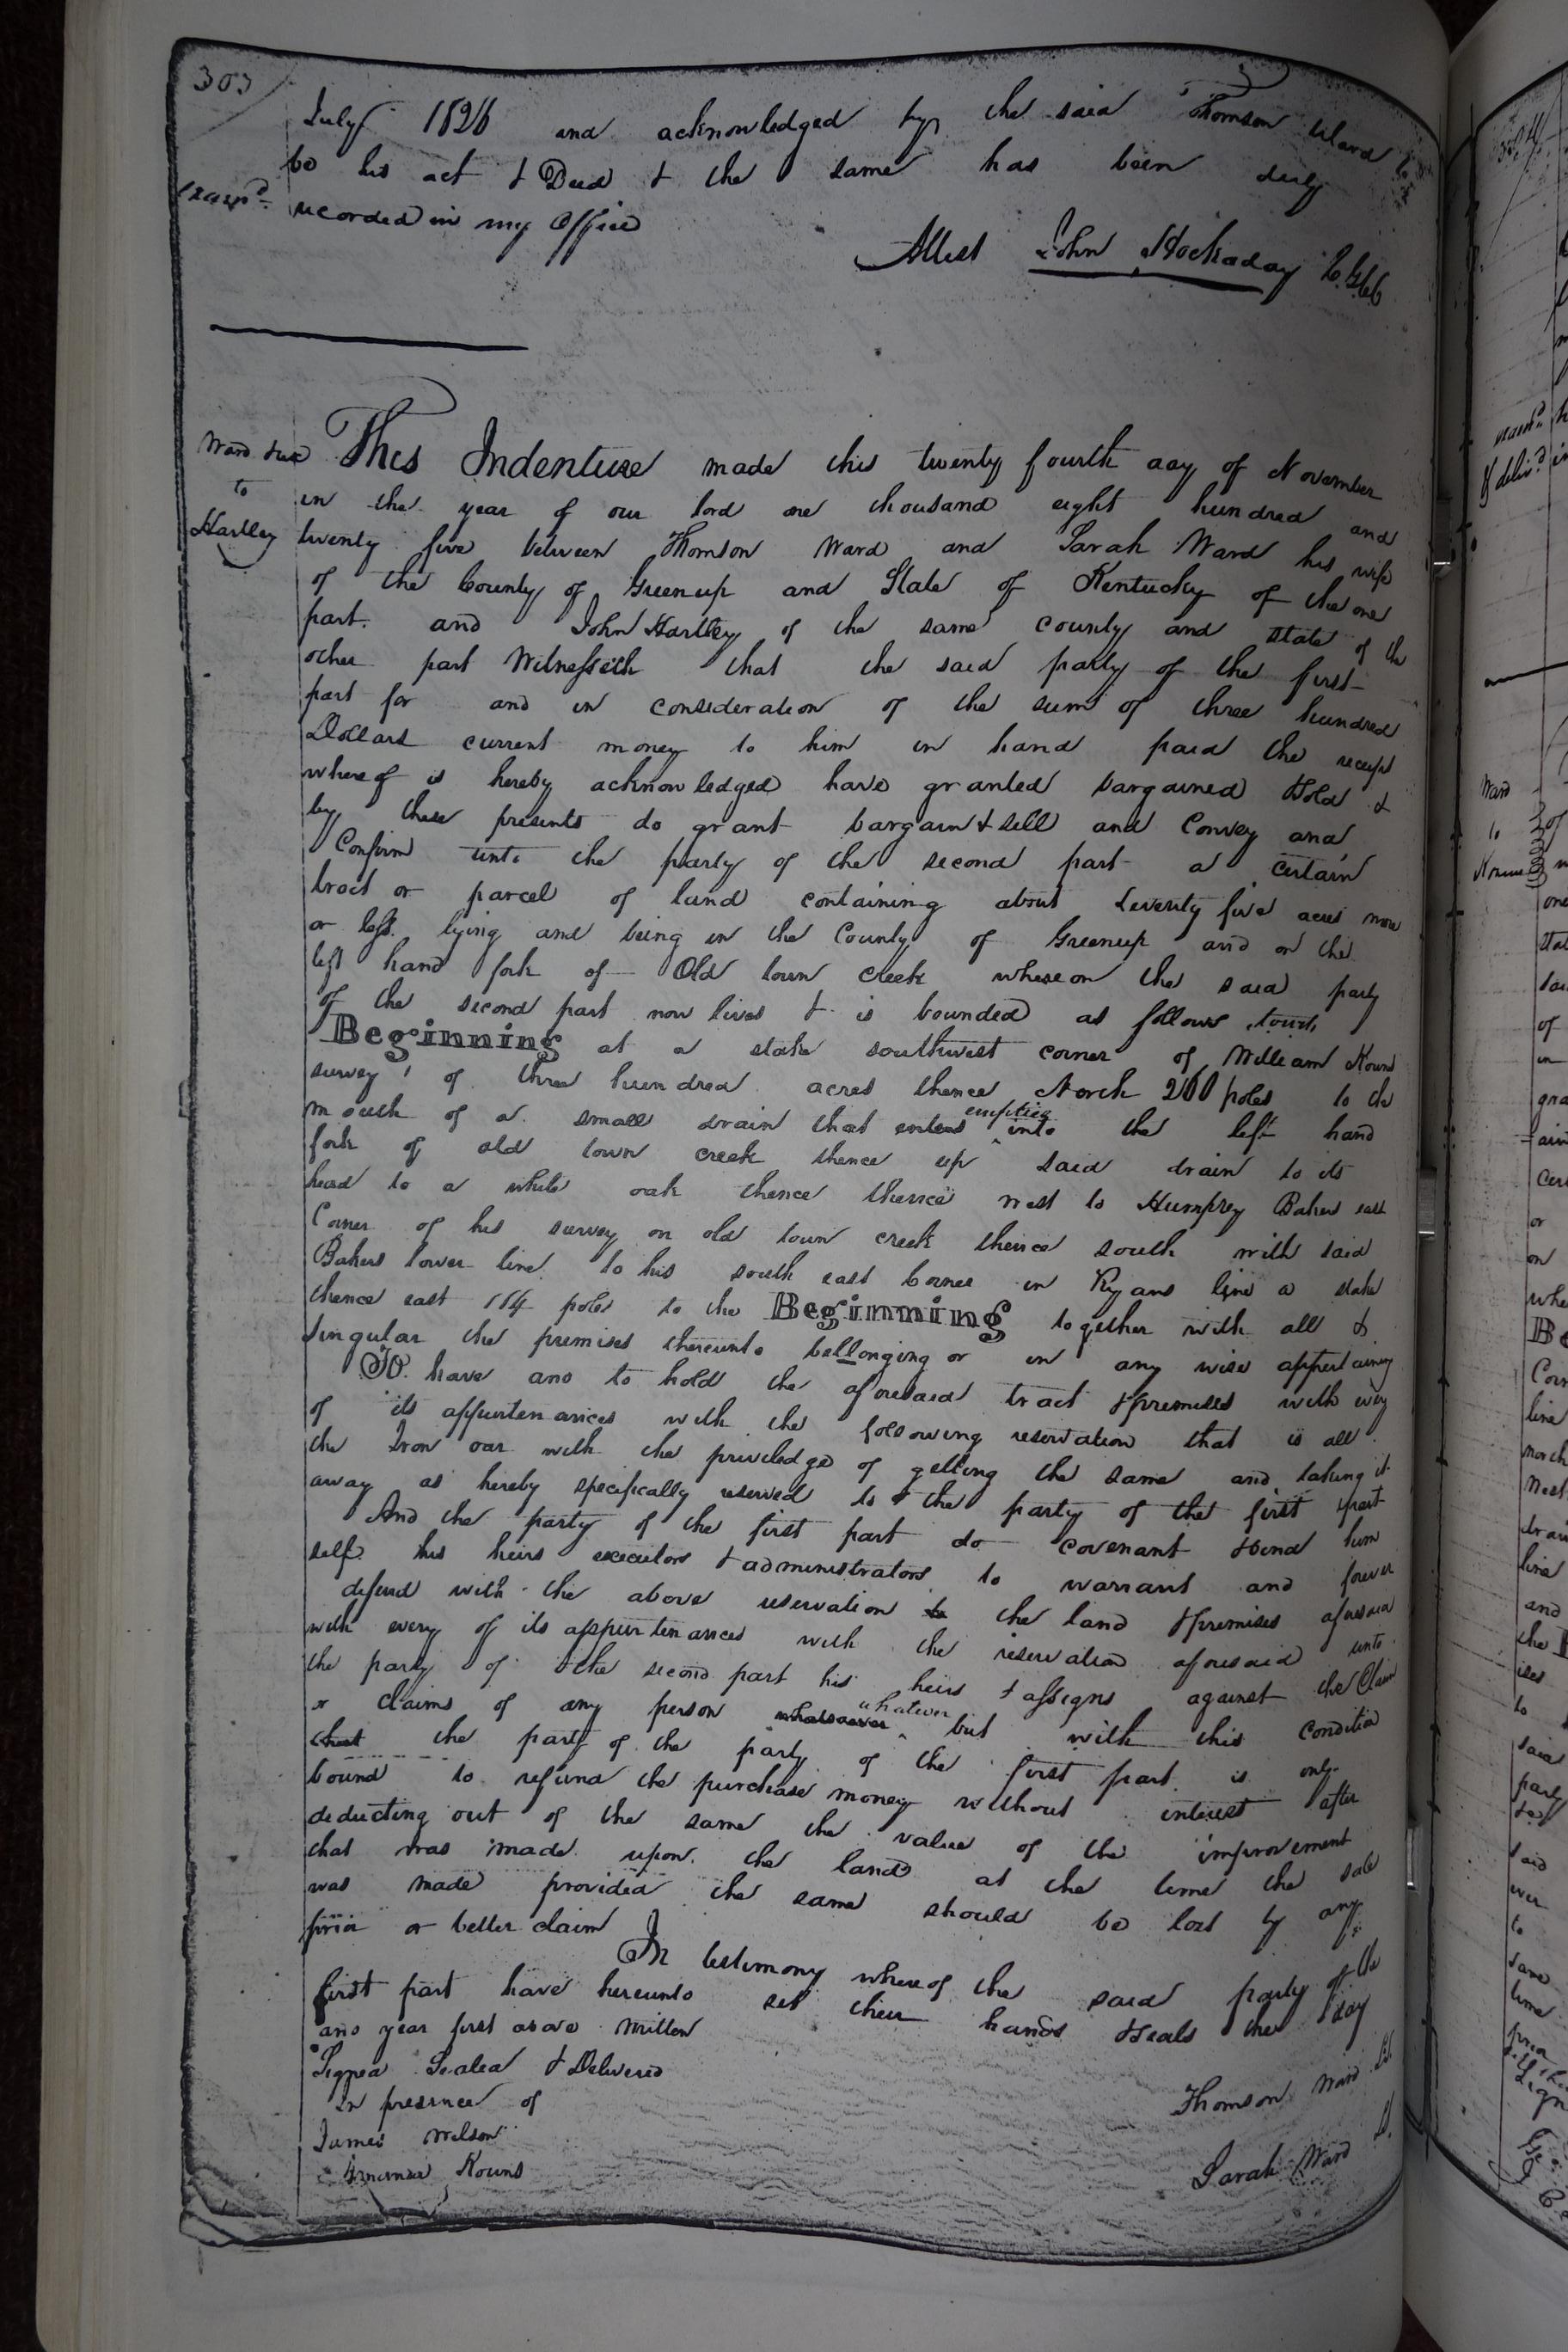 303
July 1826 and acknowledged by the said Thomson Ward to
be his act & Deed & the same has been duly
recorded in my Office
Attest John Hockaday
Ward &ux
to
Hartley
This Indenture made this twenty fourth day of November
in the year of our lord one thousand eight hundred and
twenty five between Thomson Ward and Sarah Ward his wife
of the County of Greenup and State of Kentucky of the one
part. and John Hartley of the same county and state of the
other part Witnesseth that the said party of the first
part for and in consideration of the sum of three hundred
Dollars current money to him in hand paid the receipt
whereof is hereby acknowledged have granted bargained &sold &
by these presents do grant bargain & sell and Convey and
Confirm unto the party of the second part a certain
tract or parcel of land containing about Seventy five acres more
or less. lying and being in the County of Greenup and on the
left hand fork of Old town Creek whereon the said party
of the second part now lives & is bounded as follows, towit,
Beginning at a stake southwest corner of William Kouns
survey of three hundred acres thence North 260 poles to the
mouth of a small drain that enters empties into the left hand
fork of old town creek thence up said drain to its
head to a white oak thence thence west to Humphrey Bakers east
Corner of his survey on old town creek thence south with said
Bakers lower line to his south east Corner in Ryans line a stake
thence east 184 poles to the Beginning together with all &
singular the premises thereunto bellonging or in any wise appertaining
To have and to hold the aforesaid tract &premises with every
of its appurtenances with the following reservation that is all
the Iron oar with the priviledge of getting the same and taking it
away as hereby specifically reserved to the party of the first part
And the party of the first part do covenant &bind him
self his heirs executors & administrators to warrant and forever
defend with the above reservation to the land &premises aforesaid
with every of its appurtenances with the reservation aforesaid unto
the party of the second part his heirs & assigns against the Claim
or claims of any person whatsoever whatever but with this Condition
that the party of the party of the first part is only
bound to refund the purchase money without interest after
deducting out of the same the value of the improvement
that was made upon the land at the time the sale
was made provided the same should be lost by any
prior or better claim
In testimony whereof the said party of the
first part have hereunto set their hands &seals the day
and year first above written
Signed Sealed & Delivered
in presence of
James Wilson
Kouns
Thomson Ward
Sarah Ward